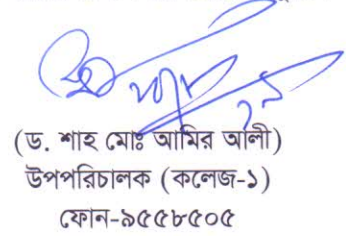 (ড. শাহ মোঃ আমির আলী)
উপপরিচালক (কলেজ-১)
ফোন-৯৫৫৮৫০৫